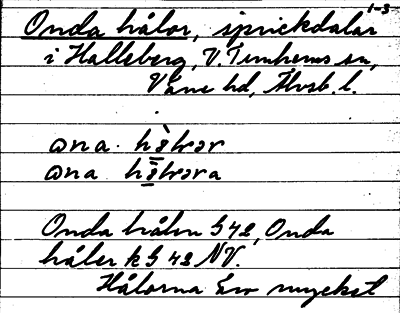 1-3
Onda hålor, sprickdalar
i Halleberg, V. Tunhems sn,
Väne hd, Älvsb. l.
ɷna hålrar
ɷna hålrara
Onda hålen G 42, Onda
håler k G 42 NV.
Hålorna äro mycket